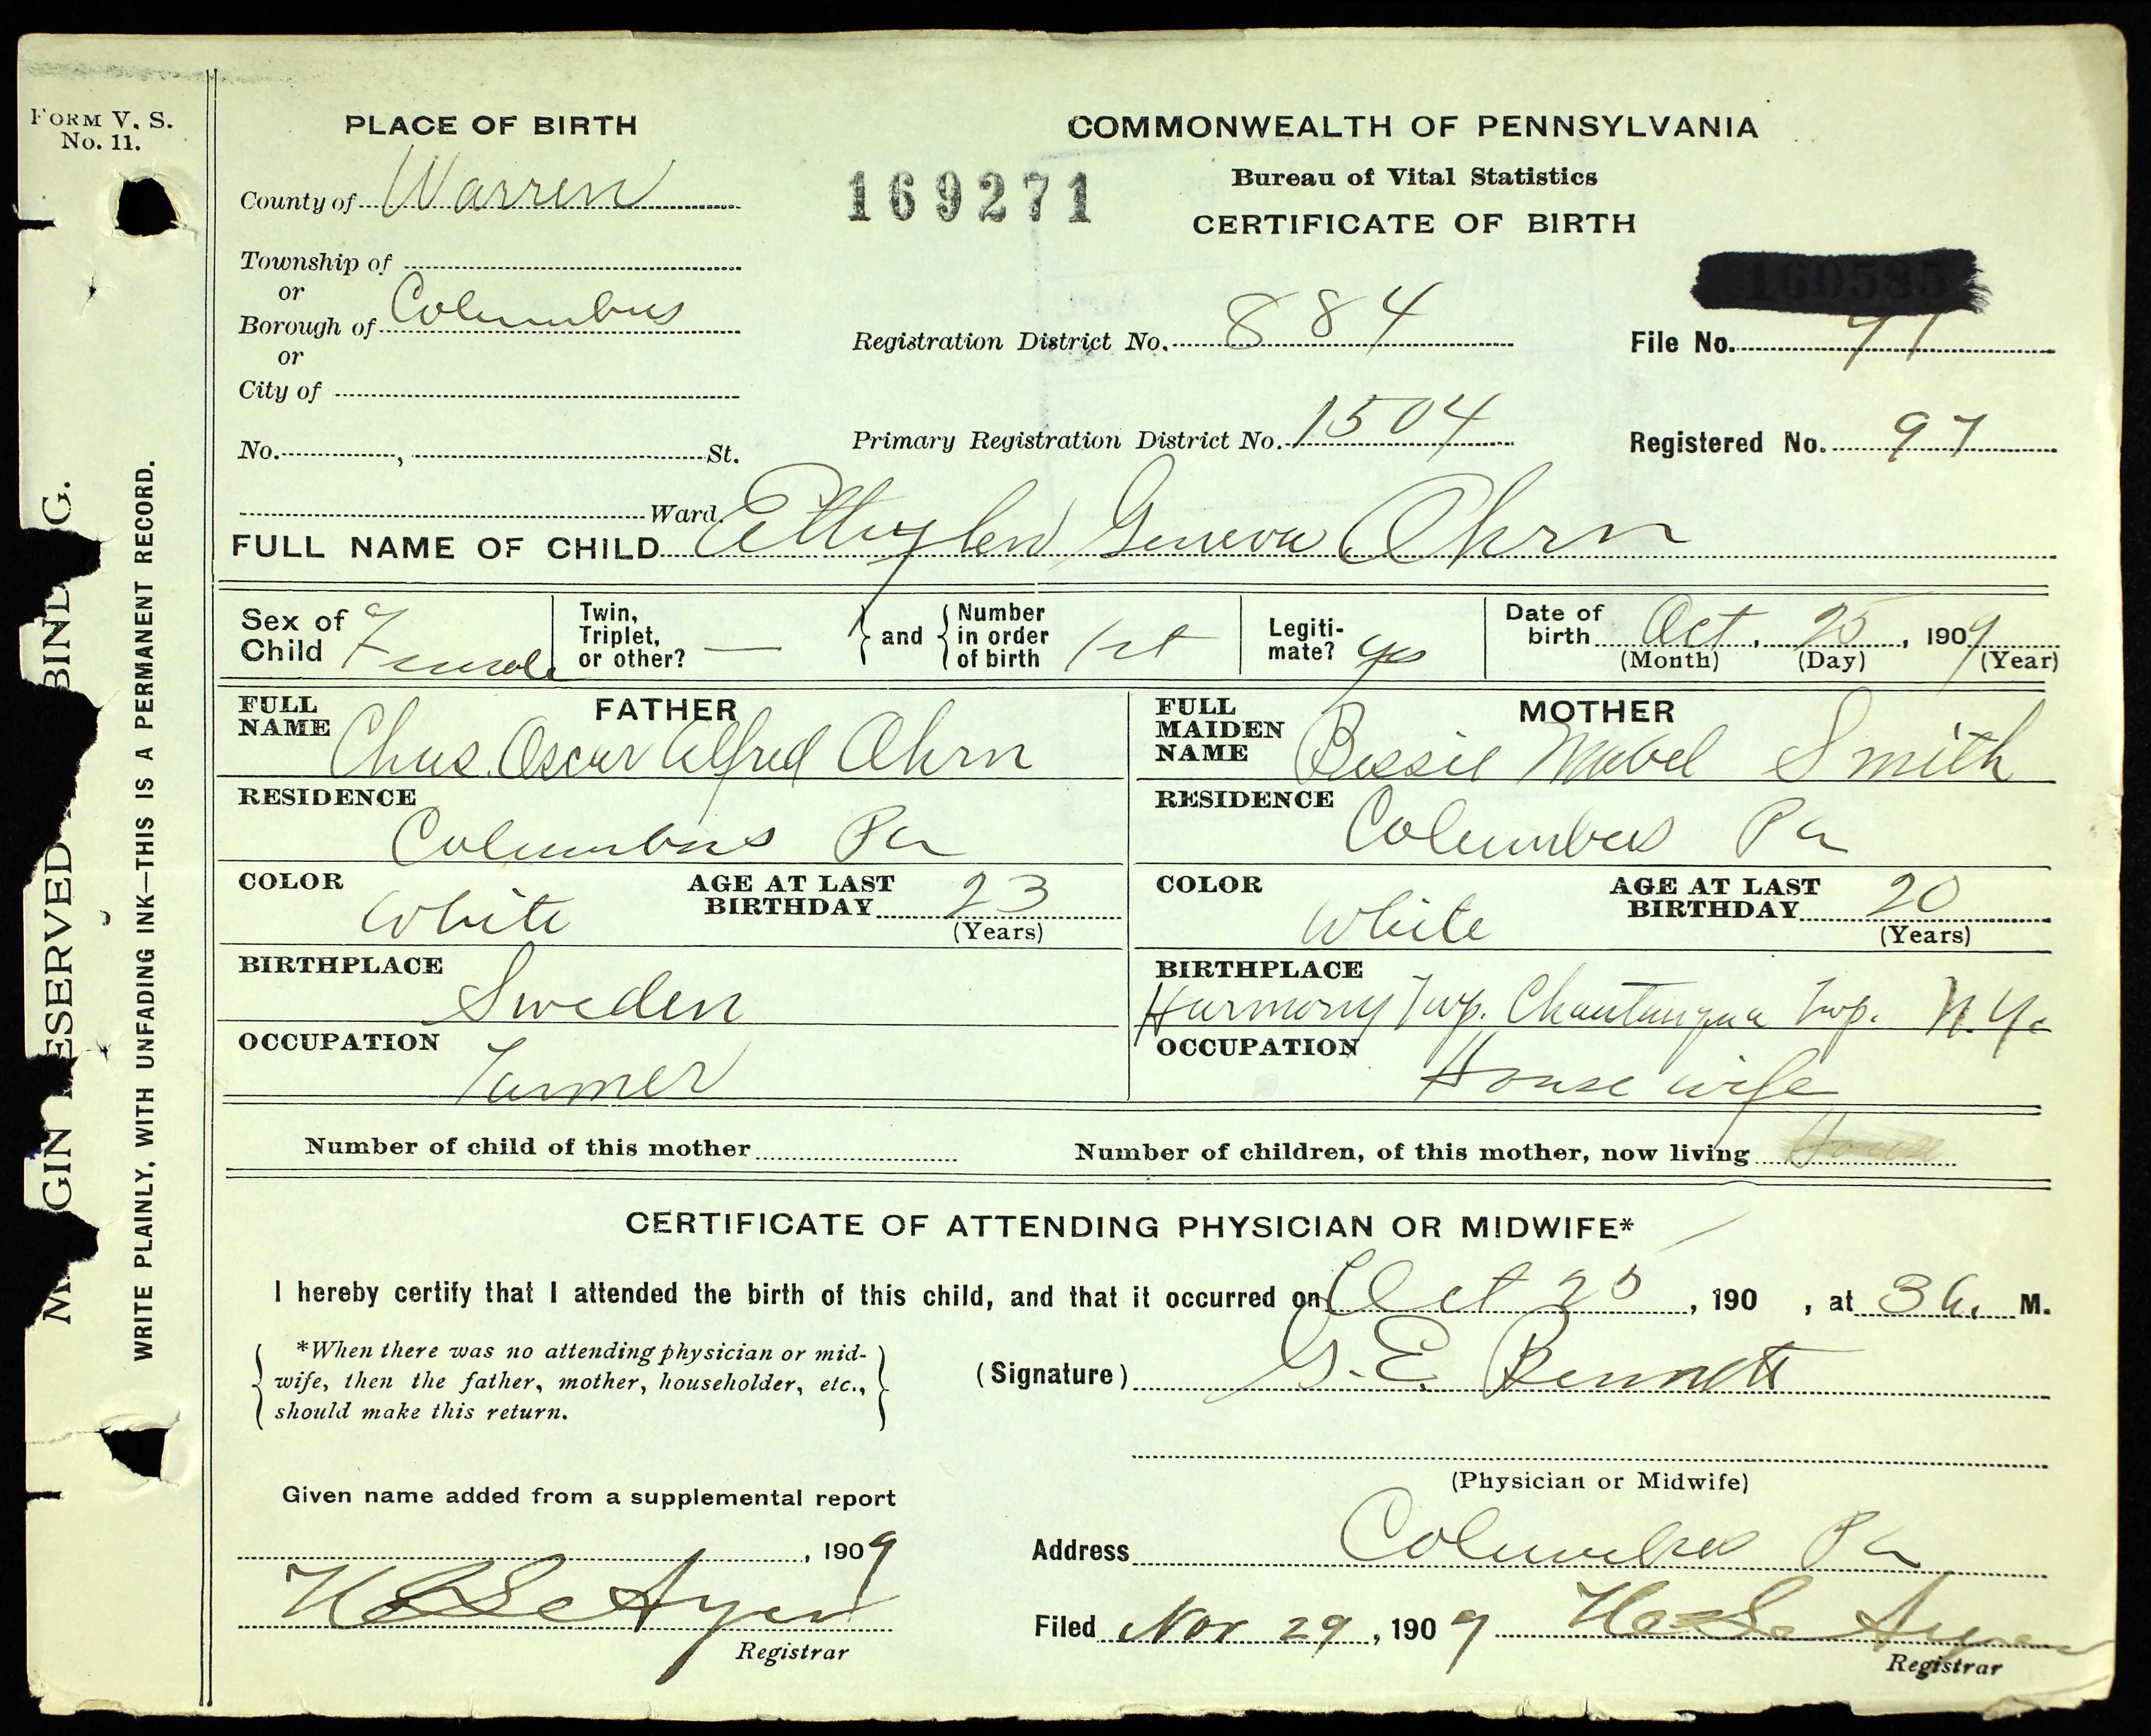 FORM V. S.
No. 11.
PLACE OF BIRTH
COMMONWEALTH OF PENNSYLVANIA
Bureau of Vital Statistics
CERTIFICATE OF BIRTH
169271
160585
County of Warren
Township of
or
Borough of Columbus
or
City of
No. , St.
Ward.
Registration District No. 884
File No.
Primary Registration District No. 1504
Registered No. 97
FULL NAME OF CHILD Geneva Ahrn
Sex of Child Female
Twin, Triplet, or other? —
and
Number in order of birth 1st
Legiti-mate? yes
Date of birth Oct, 25, 1909
(Month) (Day) (Year)
FATHER
FULL NAME Chas. Oscar Alfred Ahrn
RESIDENCE
Columbus Pa
COLOR White
AGE AT LAST BIRTHDAY 23
(Years)
BIRTHPLACE
Sweden
OCCUPATION
Farmer
MOTHER
FULL MAIDEN NAME Bessie Mabel Smith
RESIDENCE
Columbus Pa
COLOR White
AGE AT LAST BIRTHDAY 20
(Years)
BIRTHPLACE
Harmony Twp. Chautauqua Twp. N.Y.
OCCUPATION
House wife
Number of child of this mother
Number of children, of this mother, now living
CERTIFICATE OF ATTENDING PHYSICIAN OR MIDWIFE*
I hereby certify that I attended the birth of this child, and that it occurred on Oct 25, 190 , at 3 a. M.
*When there was no attending physician or mid-
wife, then the father, mother, householder, etc.,
should make this return.
(Signature) G. E. Bennett
(Physician or Midwife)
Given name added from a supplemental report
, 1909
Registrar
Address Columbus Pa
Filed Nov 29, 1909
Registrar
WRITE PLAINLY, WITH UNFADING INK—THIS IS A PERMANENT RECORD.